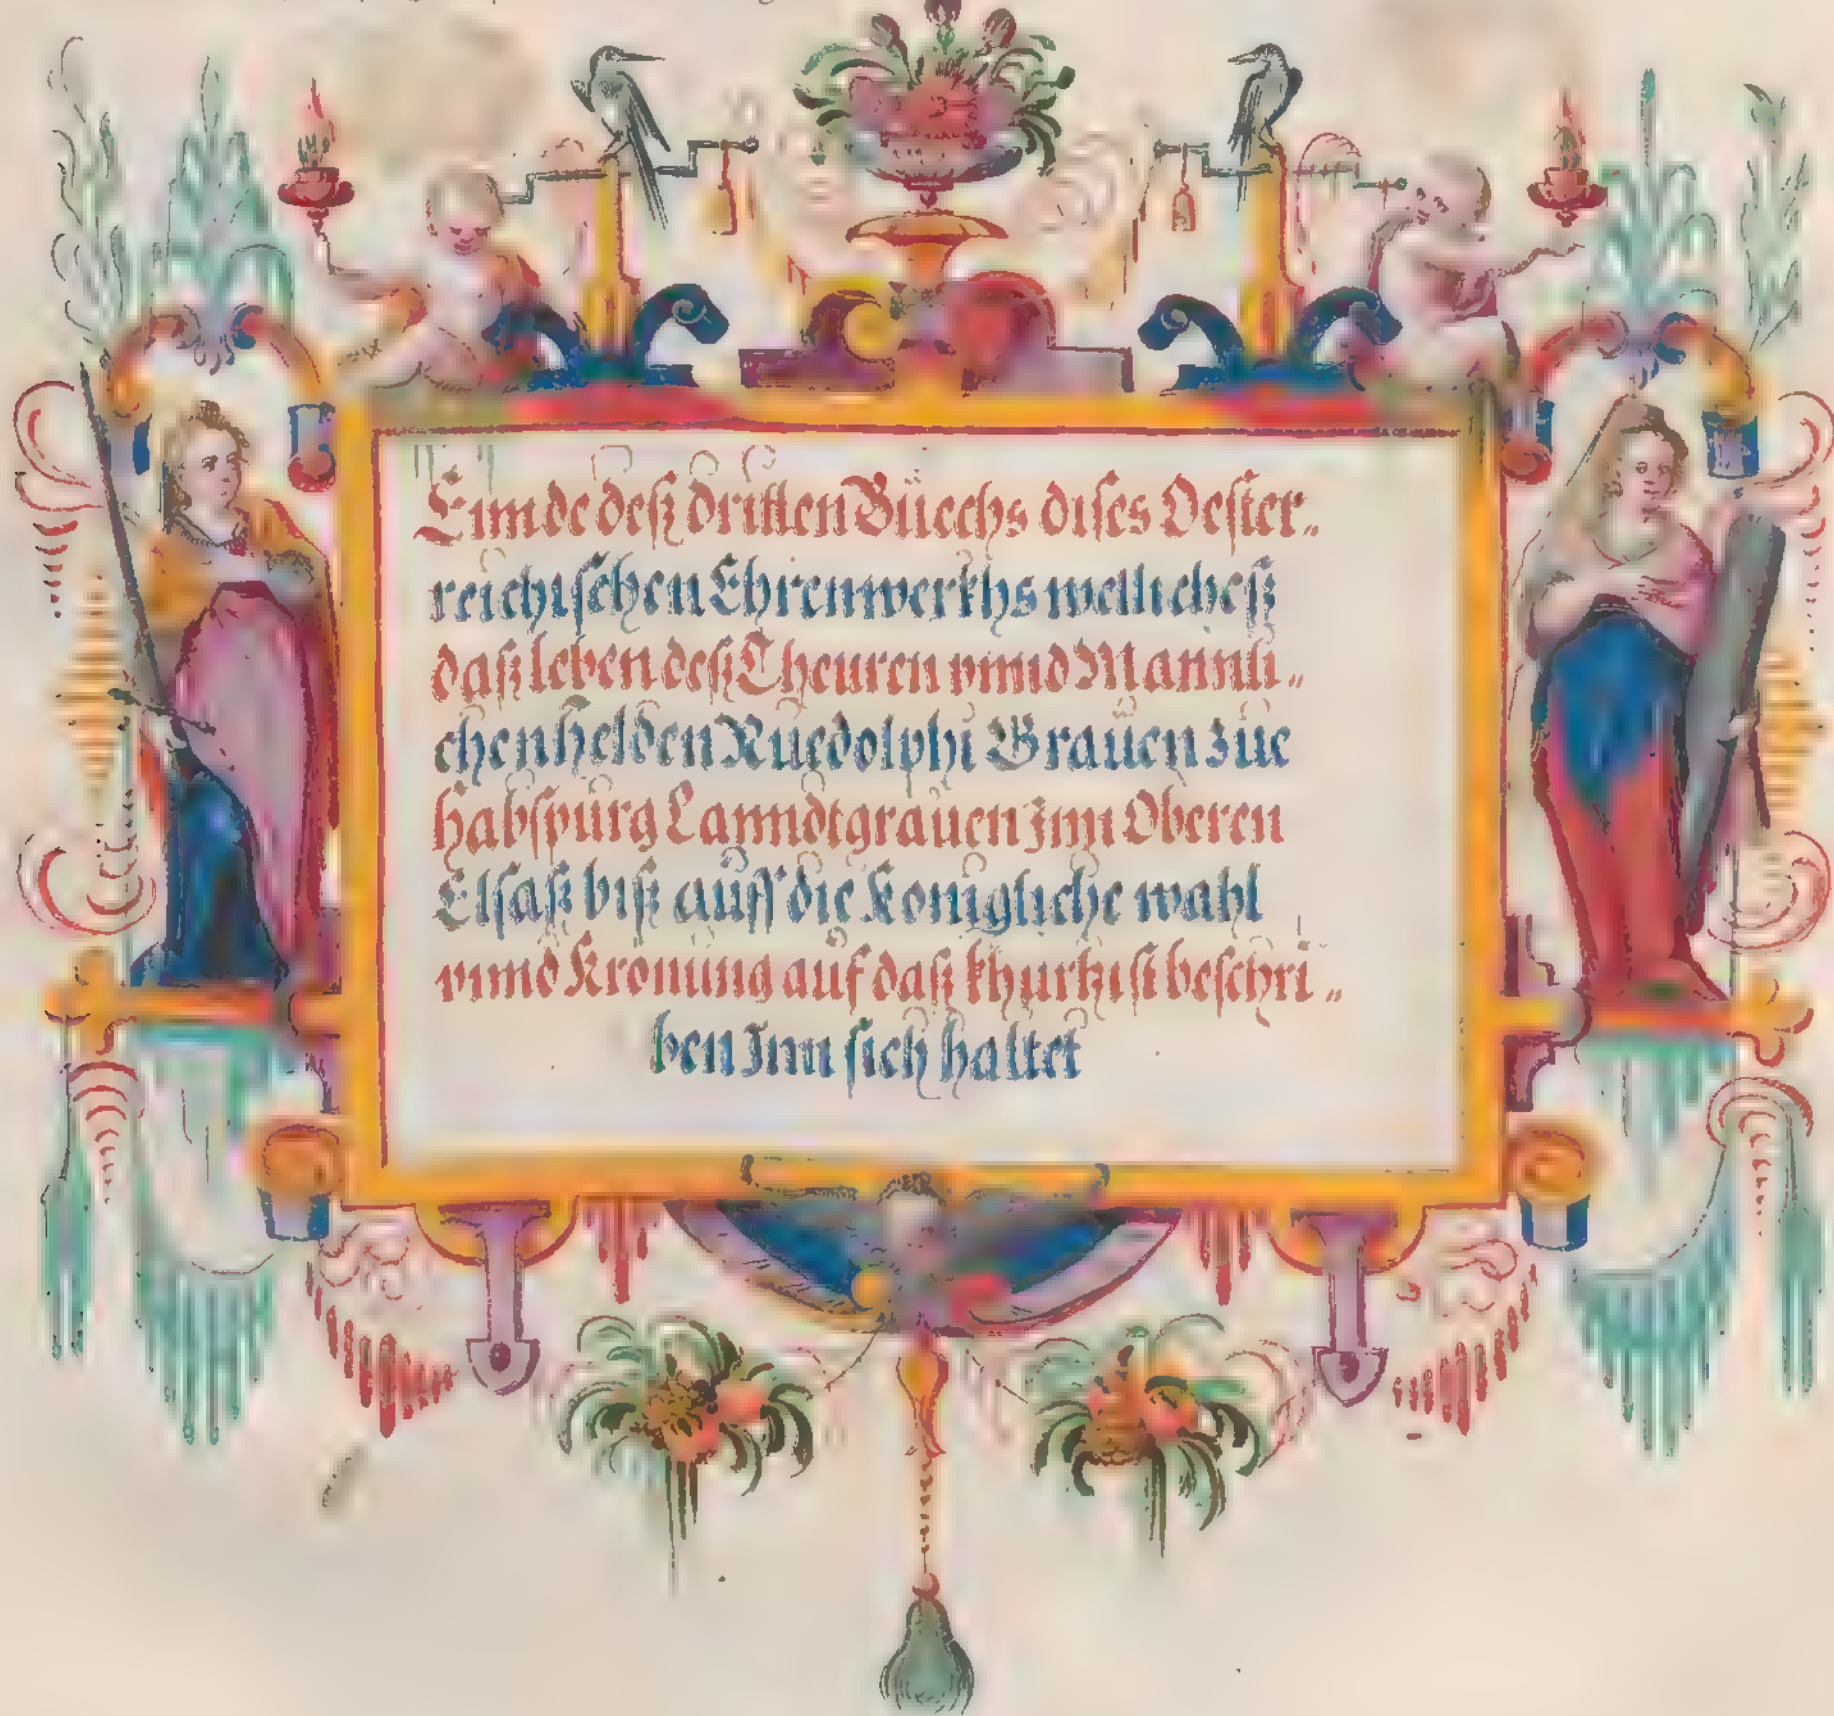 Ennde deß dritten Büechs dises Oester„
reichischen Ehrenwerkhs wellicheß
daß leben deß Theuren vnnd Mannli„
chen helden Ruedolphi Grauen züe
habspürg Lanndtgrauen Inn Oberen
Elsaß biß auff die Konigliche wahl
vnnd Kronüng auf daß khurtzist beschri„
ben Inn sich haltet